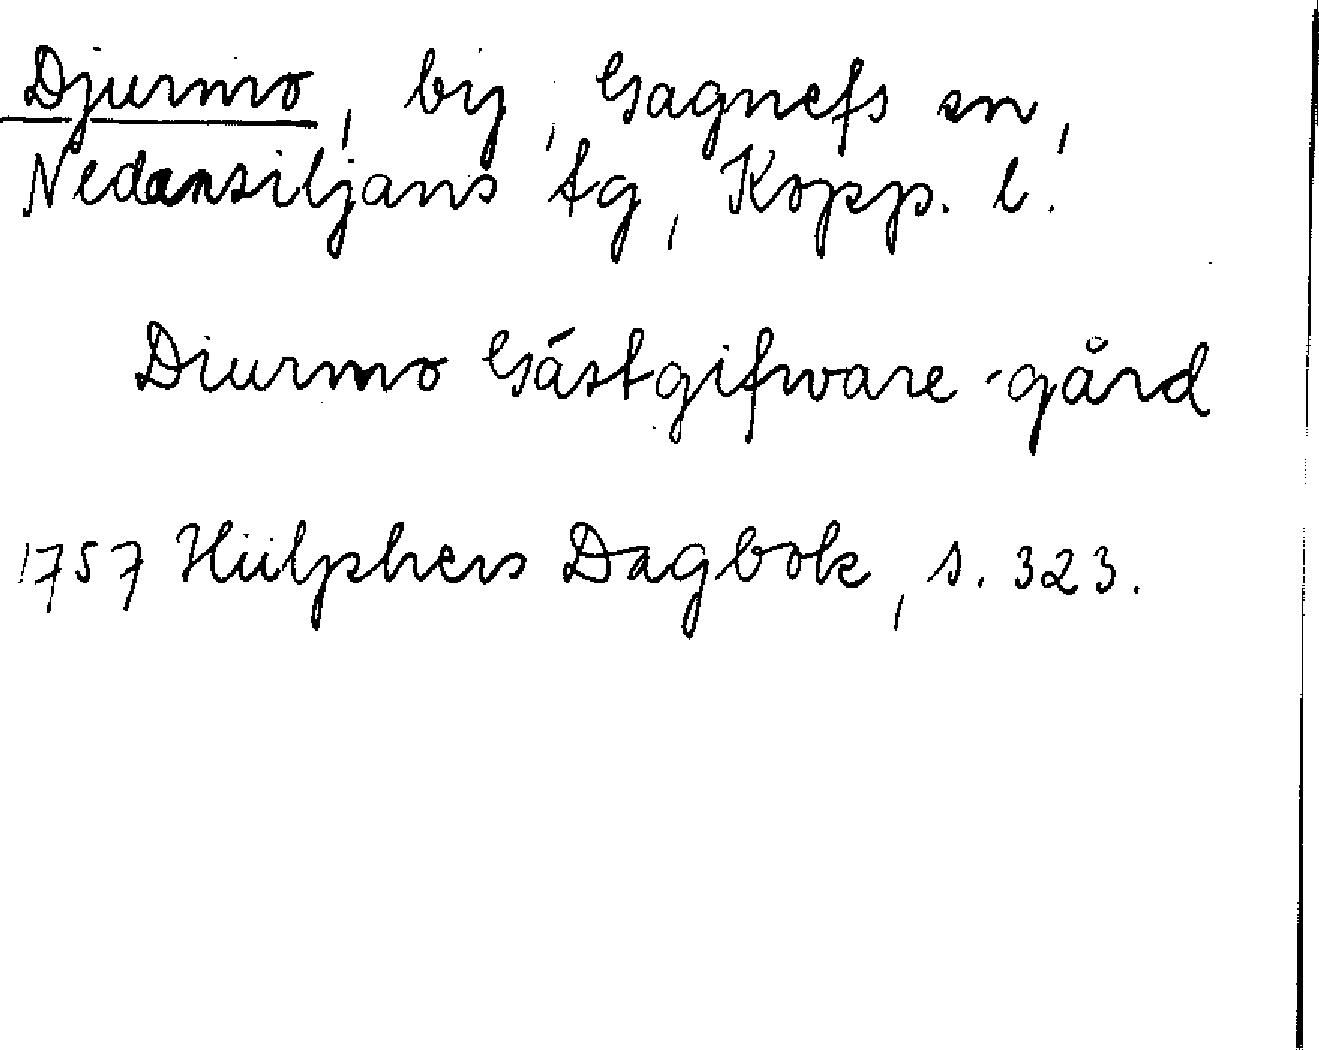 Djurmo, by, Gagnefs sn,
Nedansiljans tg, Kopp. l.
Diurmo Gästgifware-gård
1757 Hülphers Dagbok, s. 323.